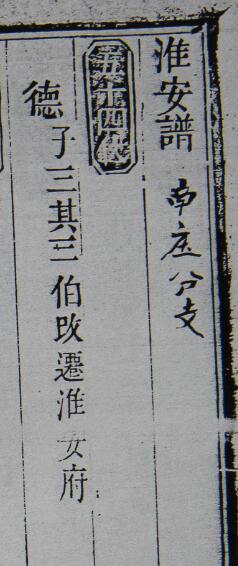 淮安譜 南庄分支
五十四世
德
子三其三伯改遷淮安府